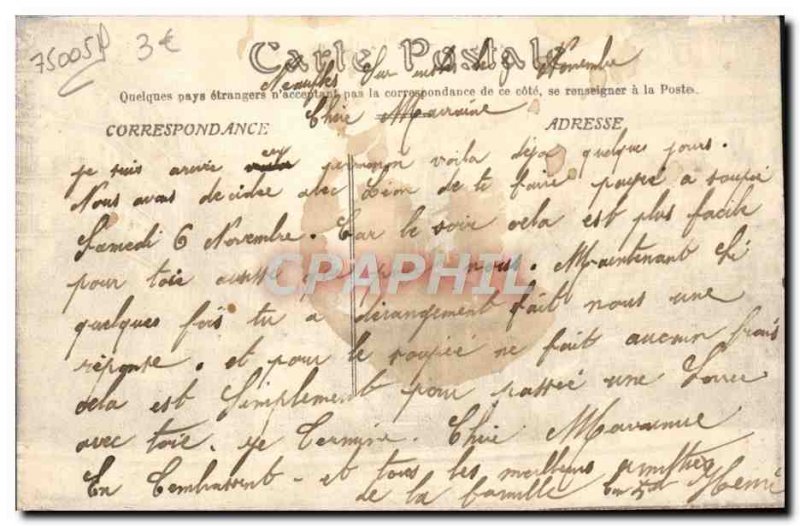 75005P 3€
Carte Postale
Neauphles Sur le 3 Novembre
Quelques pays étrangers n'acceptant pas la correspondance de ce côté, se renseigner à la Poste.
Chère Marraine
CORRESPONDANCE ADRESSE
je suis arrivé en permission voila deja quelques jours.
Nous avons decidre avec de te faire a soupée
Samedi 6 Novembre. Car le soir cela est plus facile
pour toie aussi que pour nous. Maintenant Si
quelques fois tu a dérangement fait nous une
réponse. et pour le soupée ne fait aucun frais
cela est Simplement pour passée une Soirée
avec toie. je Termine. Chère Marraine
En t'embrassent et tous les meilleurs amitiées
de la famille Henri
CPAPHIL